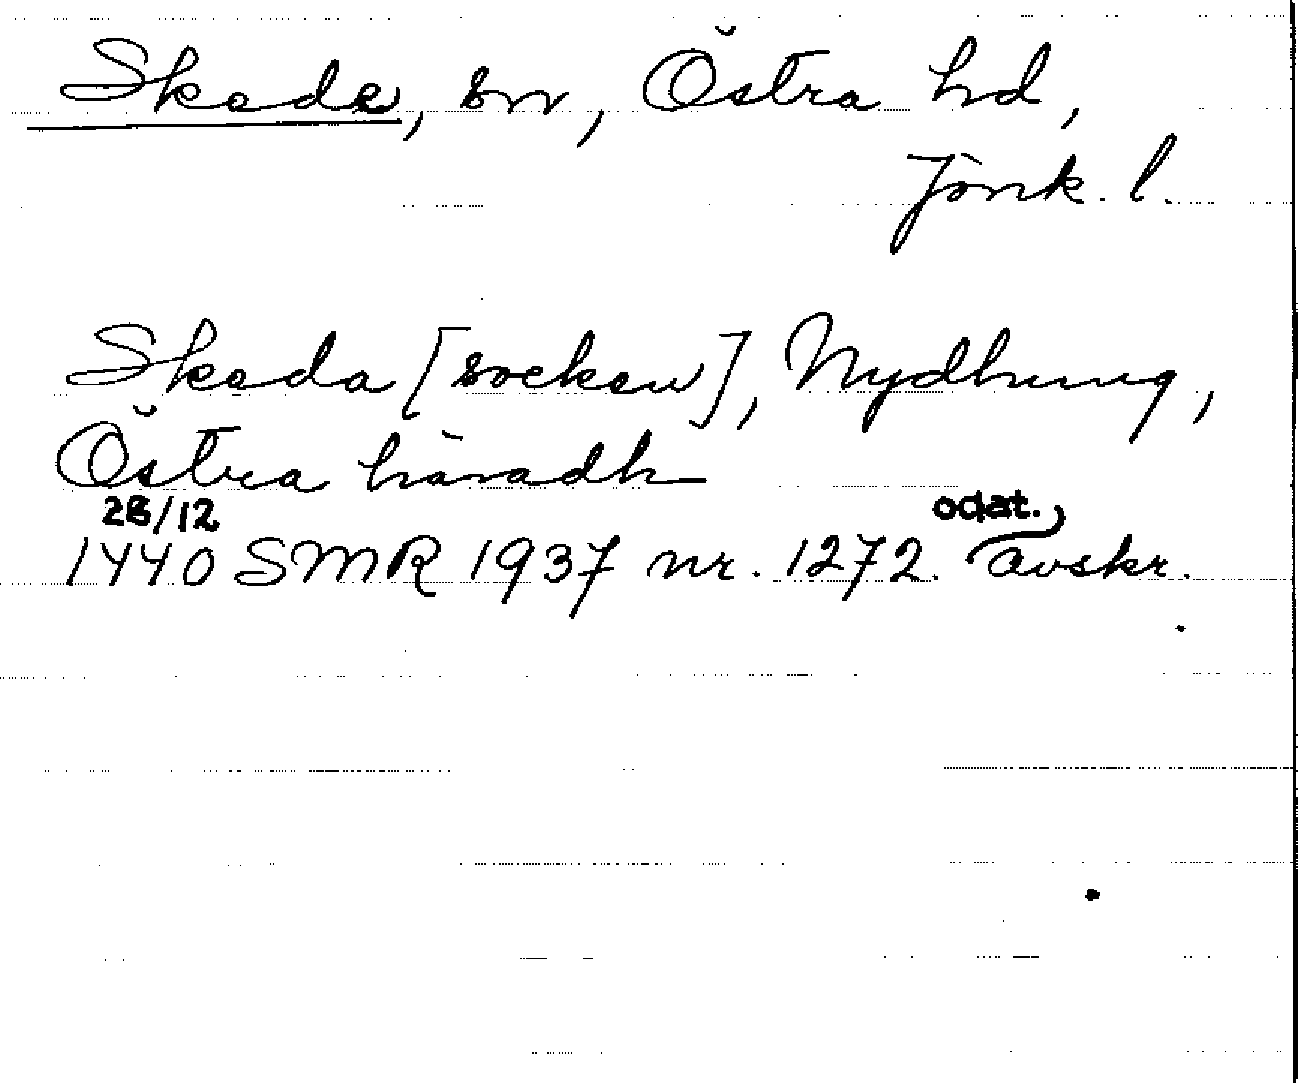 Skede, sn, Östra hd,
Jönk. l.
Skeda [socken], Nydhung,
Östra häradh
28/12 odat.,
1440 SMR 1937 nr. 1272. avskr.